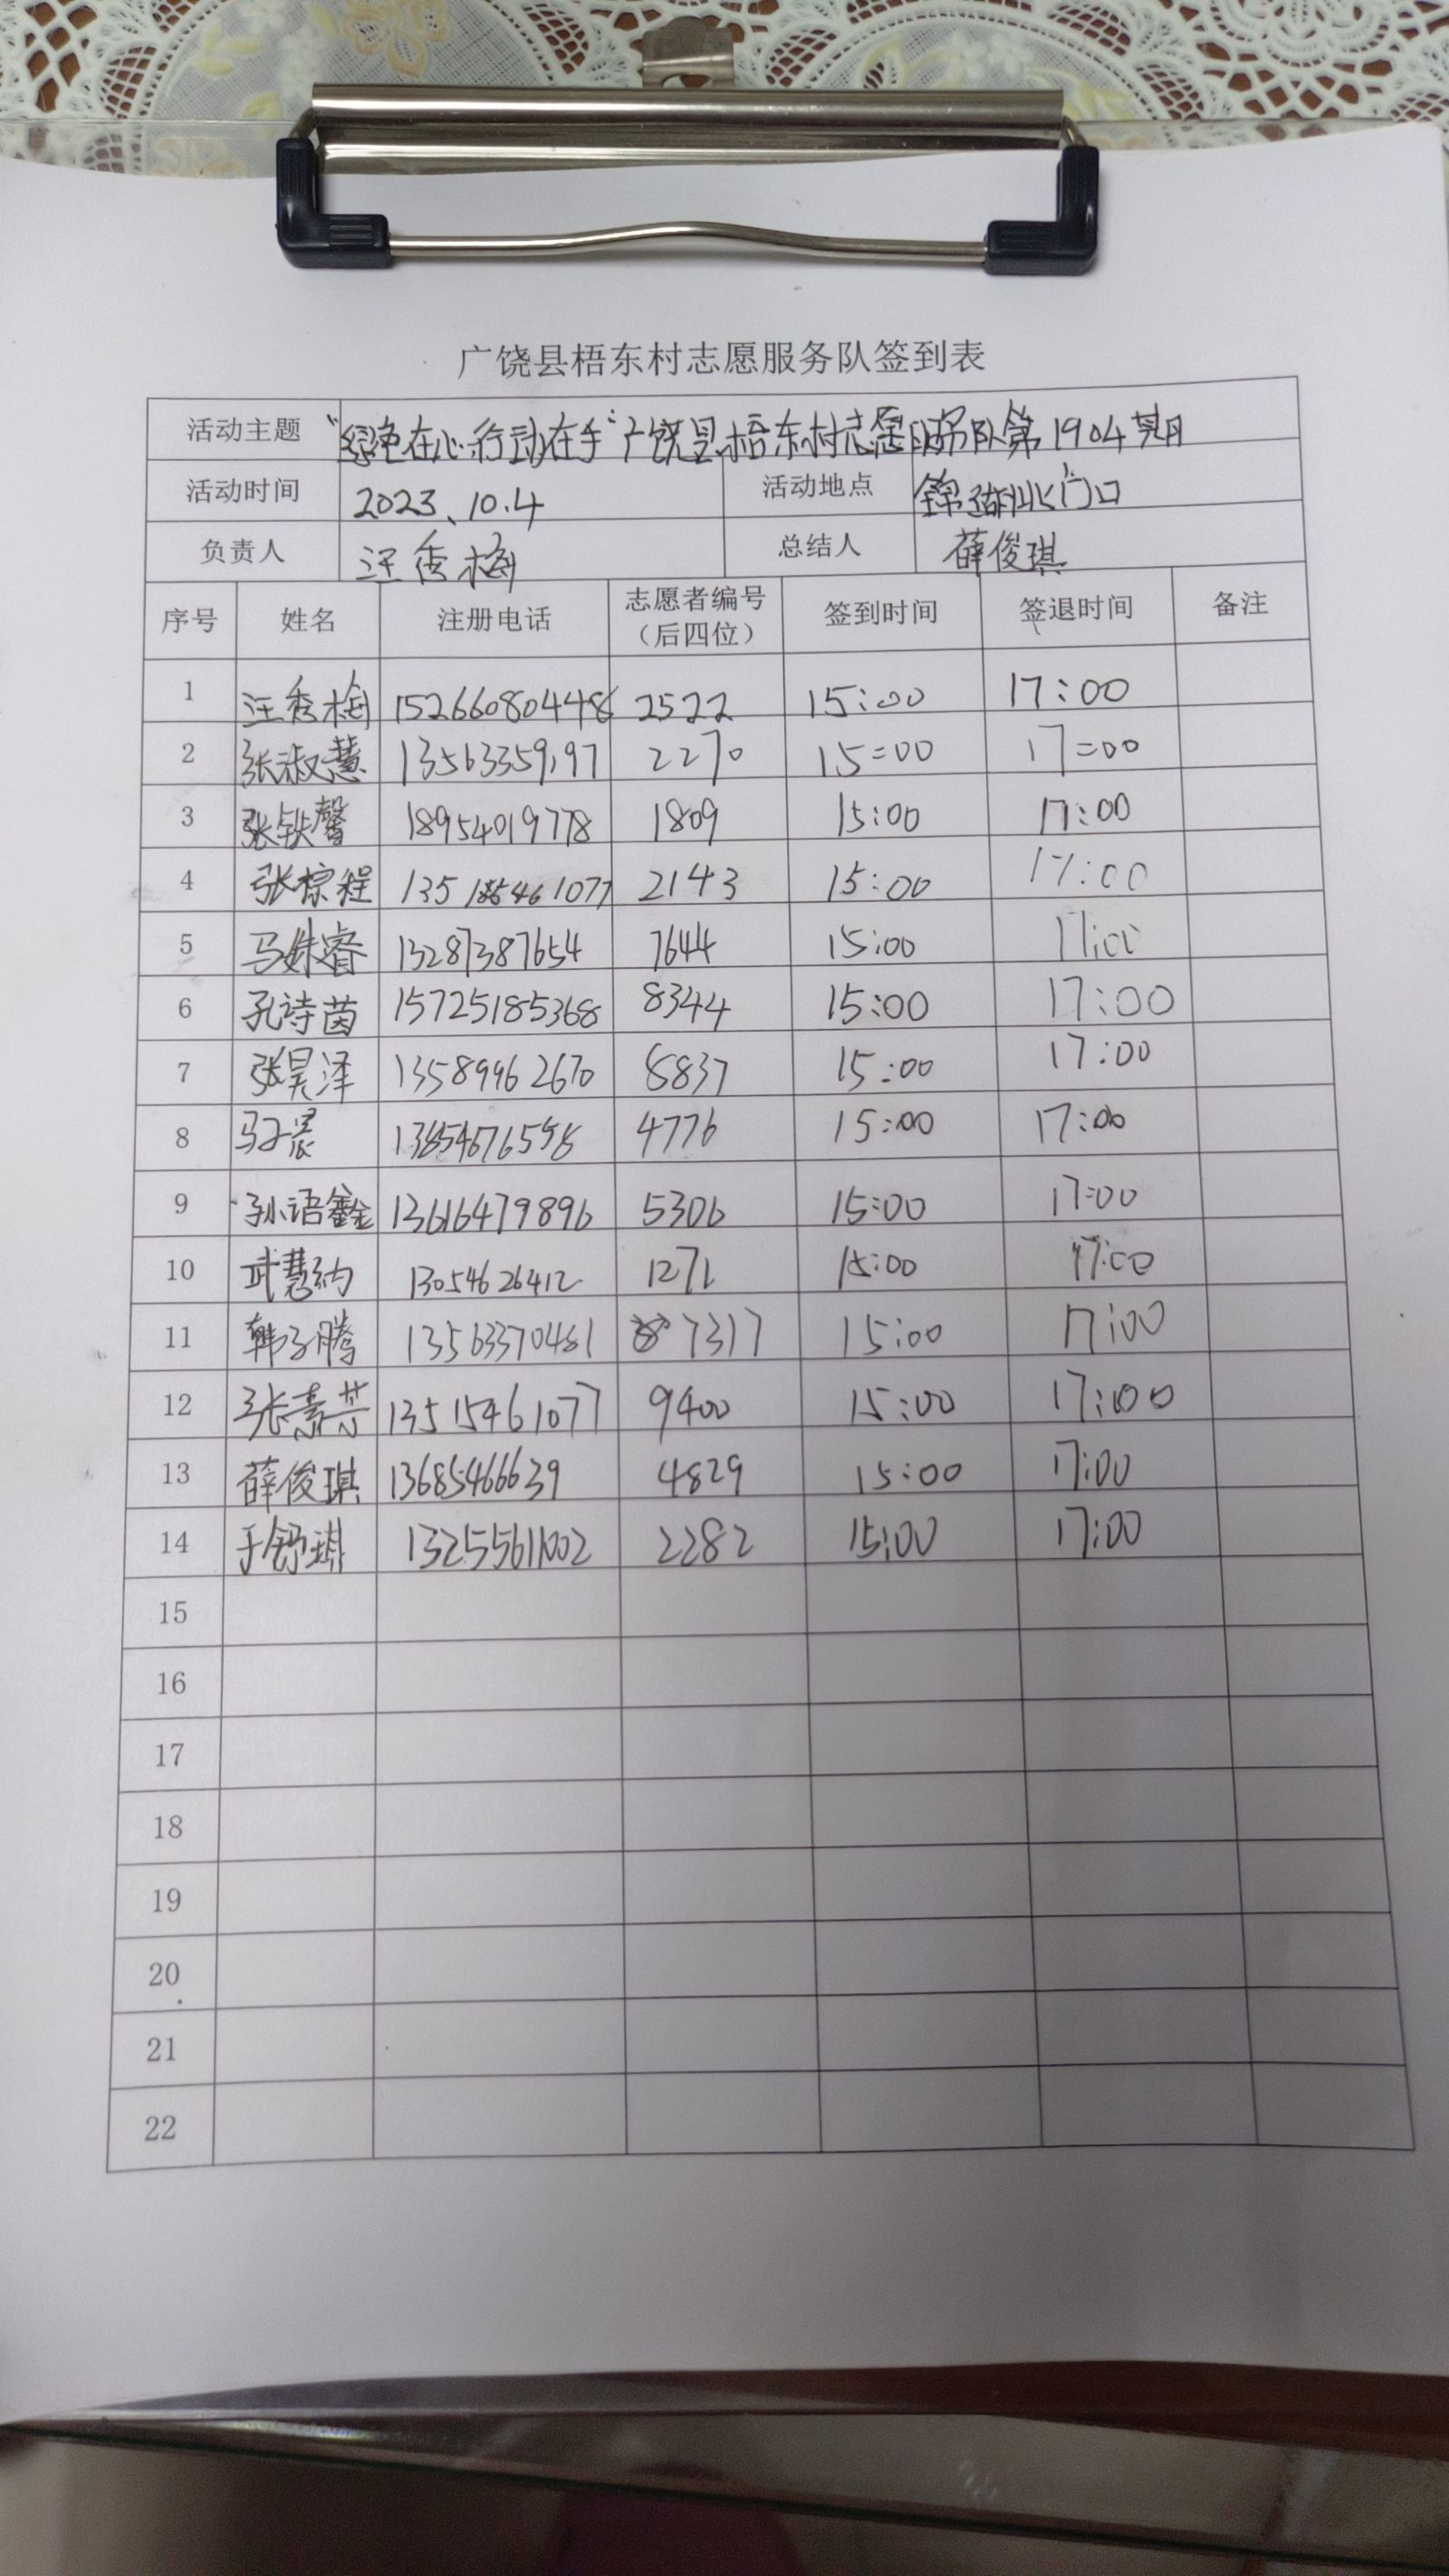 广饶县梧东村志愿服务队签到表
活动主题 “绿色在心 行动在手”广饶县梧东村志愿服务队第1904期
活动时间 2023、10.4 活动地点 锦湖北门口
负责人 汪秀梅 总结人 薛俊琪
序号 姓名 注册电话 志愿者编号（后四位） 签到时间 签退时间 备注
1 汪秀梅 15266080448 2522 15:00 17:00
2 张淑慧 13563359197 2270 15:00 17:00
3 张轶馨 18954019778 1809 15:00 17:00
4 张棕程 2143 15:00 17:00
5 马姝睿 13287387654 7644 15:00 17:00
6 孔诗茵 15725185368 8344 15:00 17:00
7 张昊泽 13589962670 8837 15:00 17:00
8 马子晨 4776 15:00 17:00
9 孙语鑫 13616479896 5306 15:00 17:00
10 武慧纳 13054626412 1271 15:00 17:00
11 韩子腾 13563370461 7317 15:00 17:00
12 张素芹 13515461077 9400 15:00 17:00
13 薛俊琪 13685466639 4829 15:00 17:00
14 于舒琪 13255611002 2282 15:00 17:00
15
16
17
18
19
20
21
22